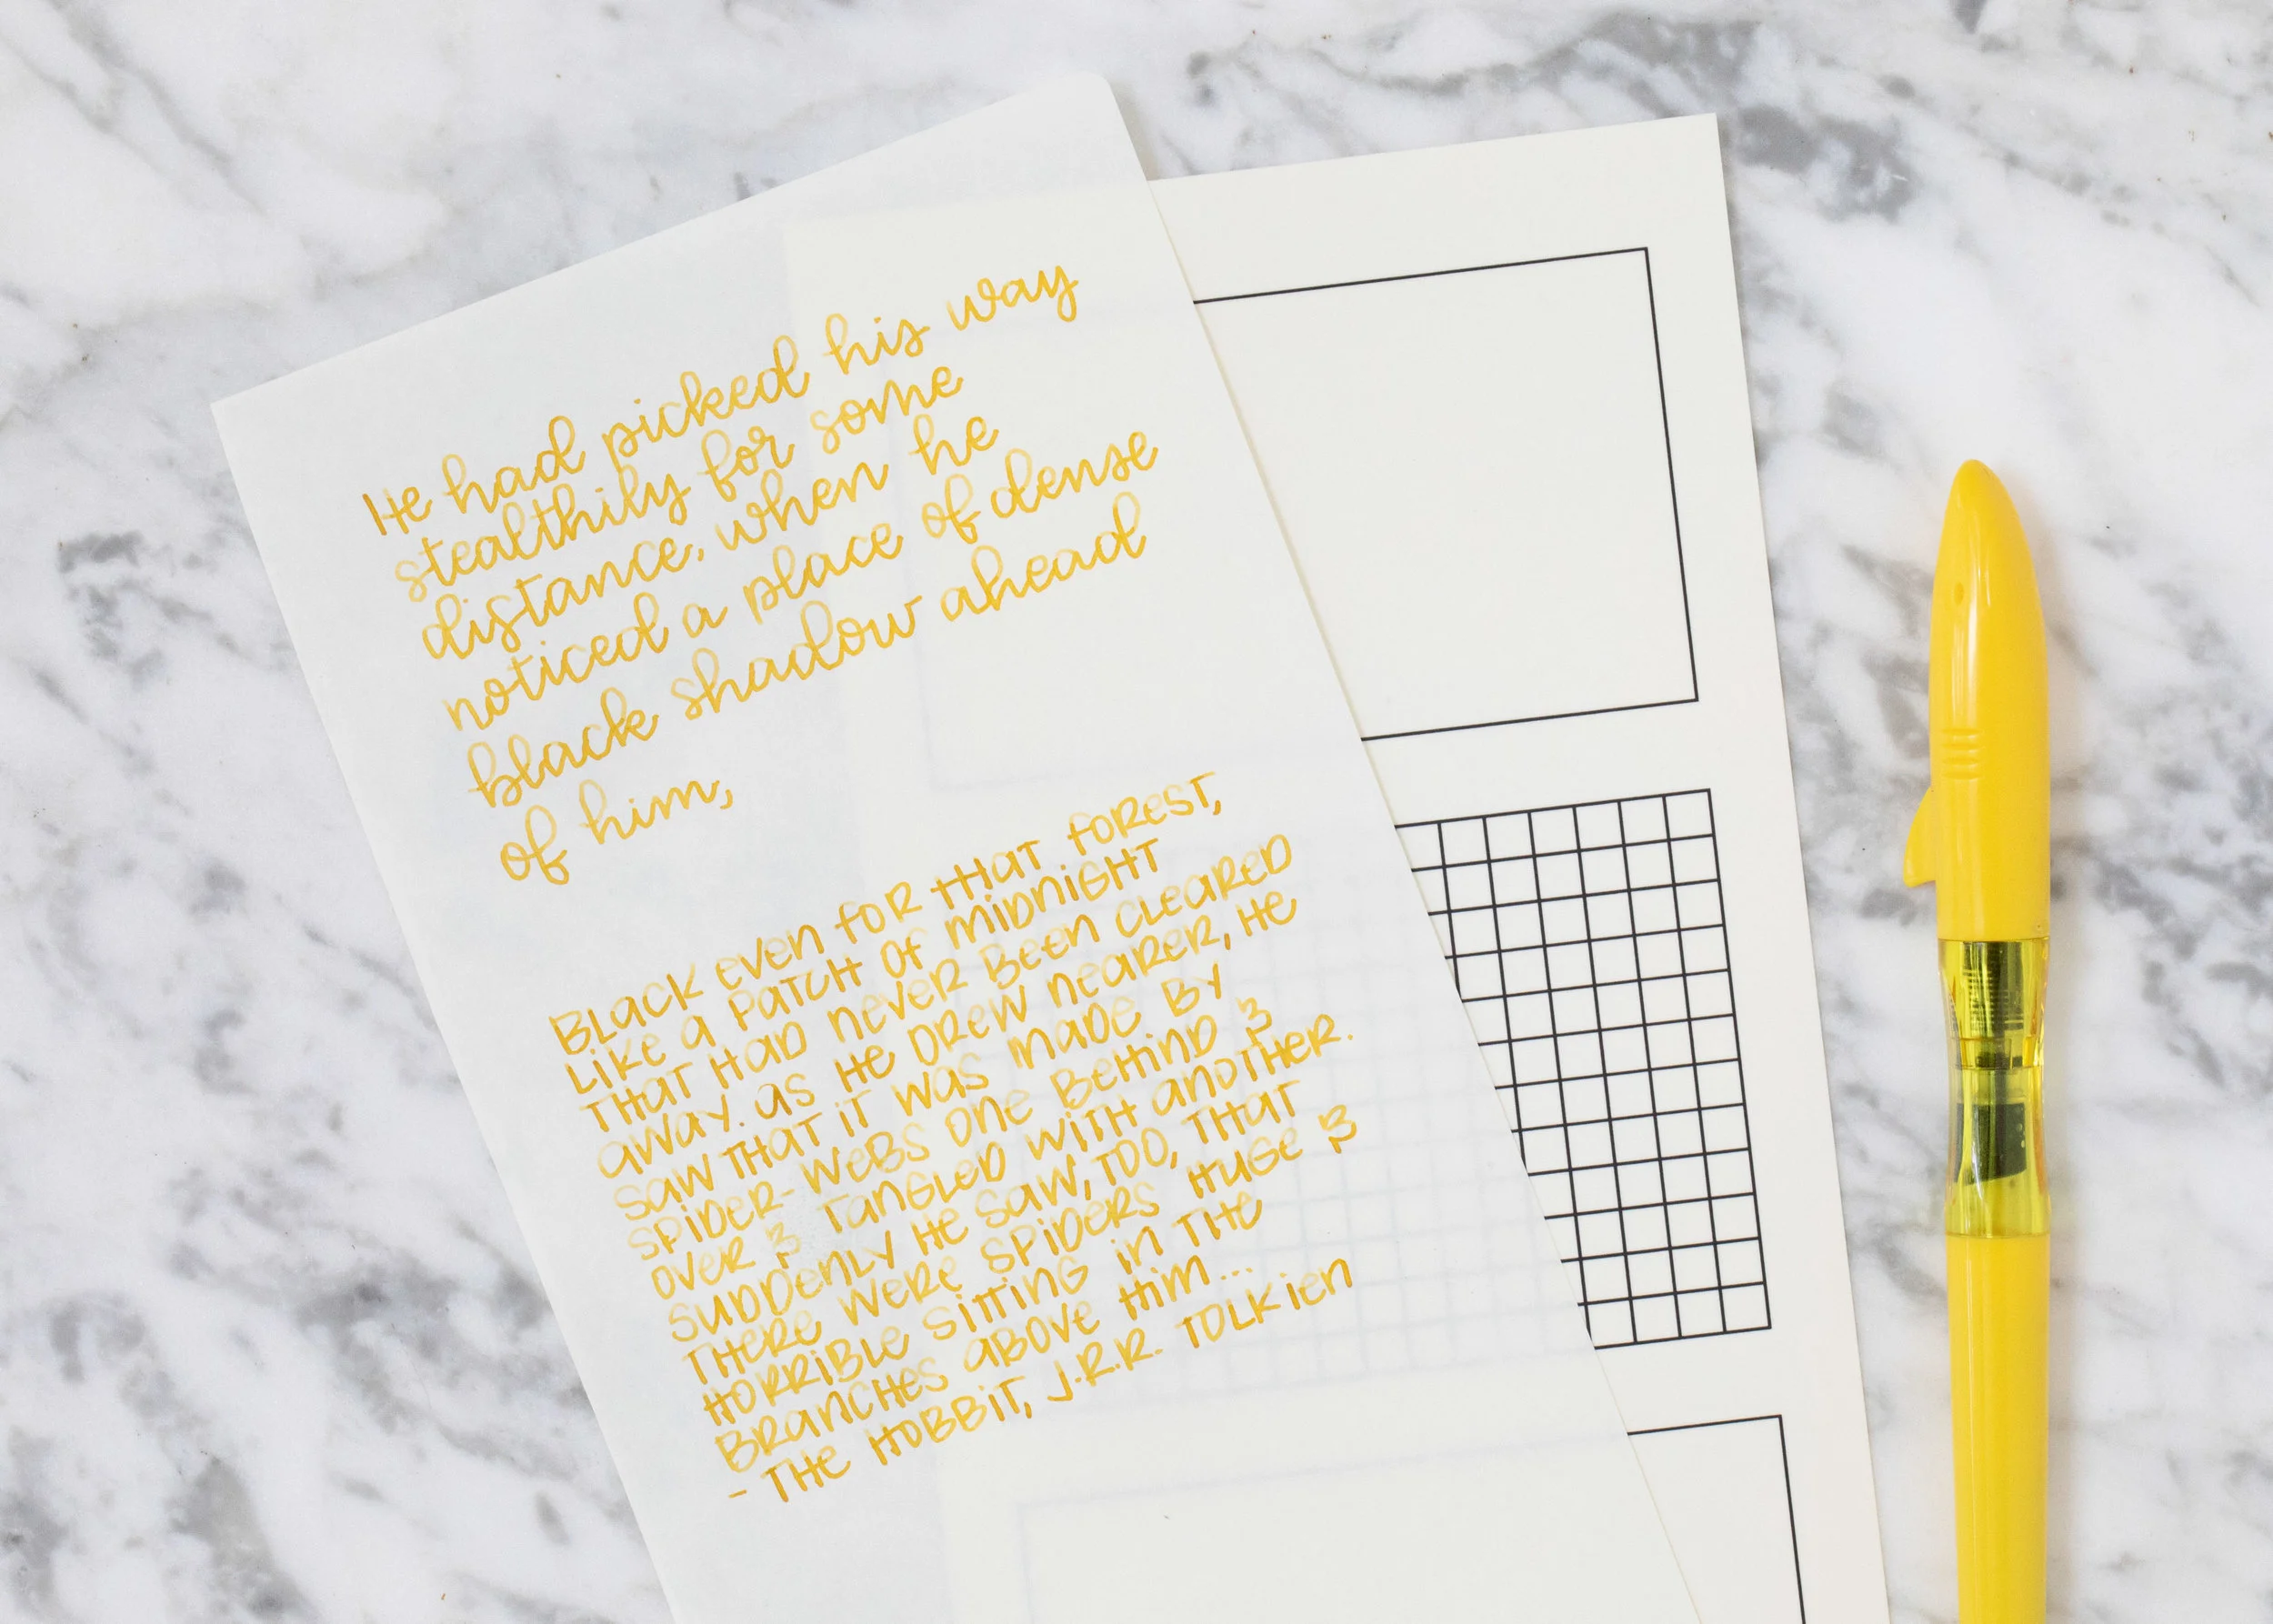 He had picked his way
stealthily for some
distance, when he
noticed a place of dense
black shadow ahead
of him,
BLACK EVEN FOR THAT FOREST,
LIKE A PATCH OF MIDNIGHT
THAT HAD NEVER BEEN CLEARED
AWAY. AS HE DREW NEARER, HE
SAW THAT IT WAS MADE BY
SPIDER-WEBS ONE BEHIND &
OVER & TANGLED WITH ANOTHER.
SUDDENLY HE SAW, TOO, THAT
THERE WERE SPIDERS HUGE &
HORRIBLE SITTING IN THE
BRANCHES ABOVE HIM...
- THE HOBBIT, J.R.R. TOLKIEN